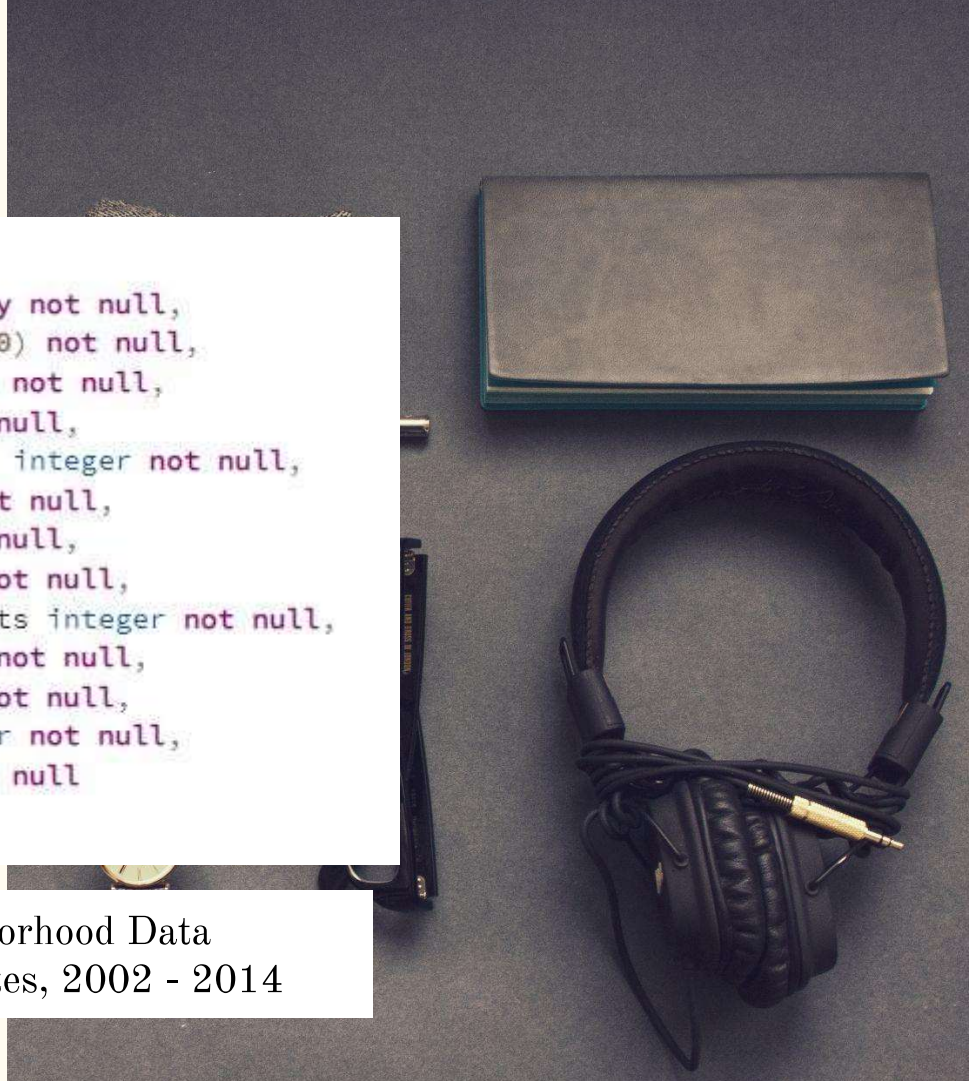 y not null,
0) not null,
not null,
null,
integer not null,
t null,
null,
ot null,
ts integer not null,
not null,
ot null,
r not null,
null
orhood Data
es, 2002 - 2014